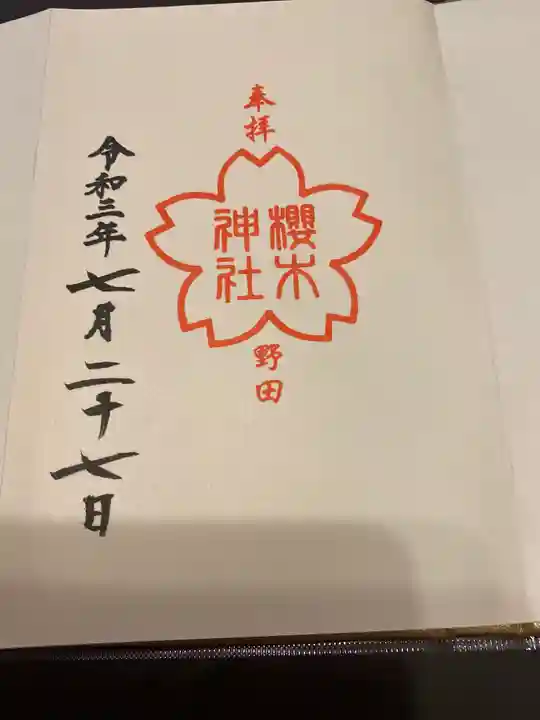 奉拝
櫻木
神社
野田
令和三年七月二十七日